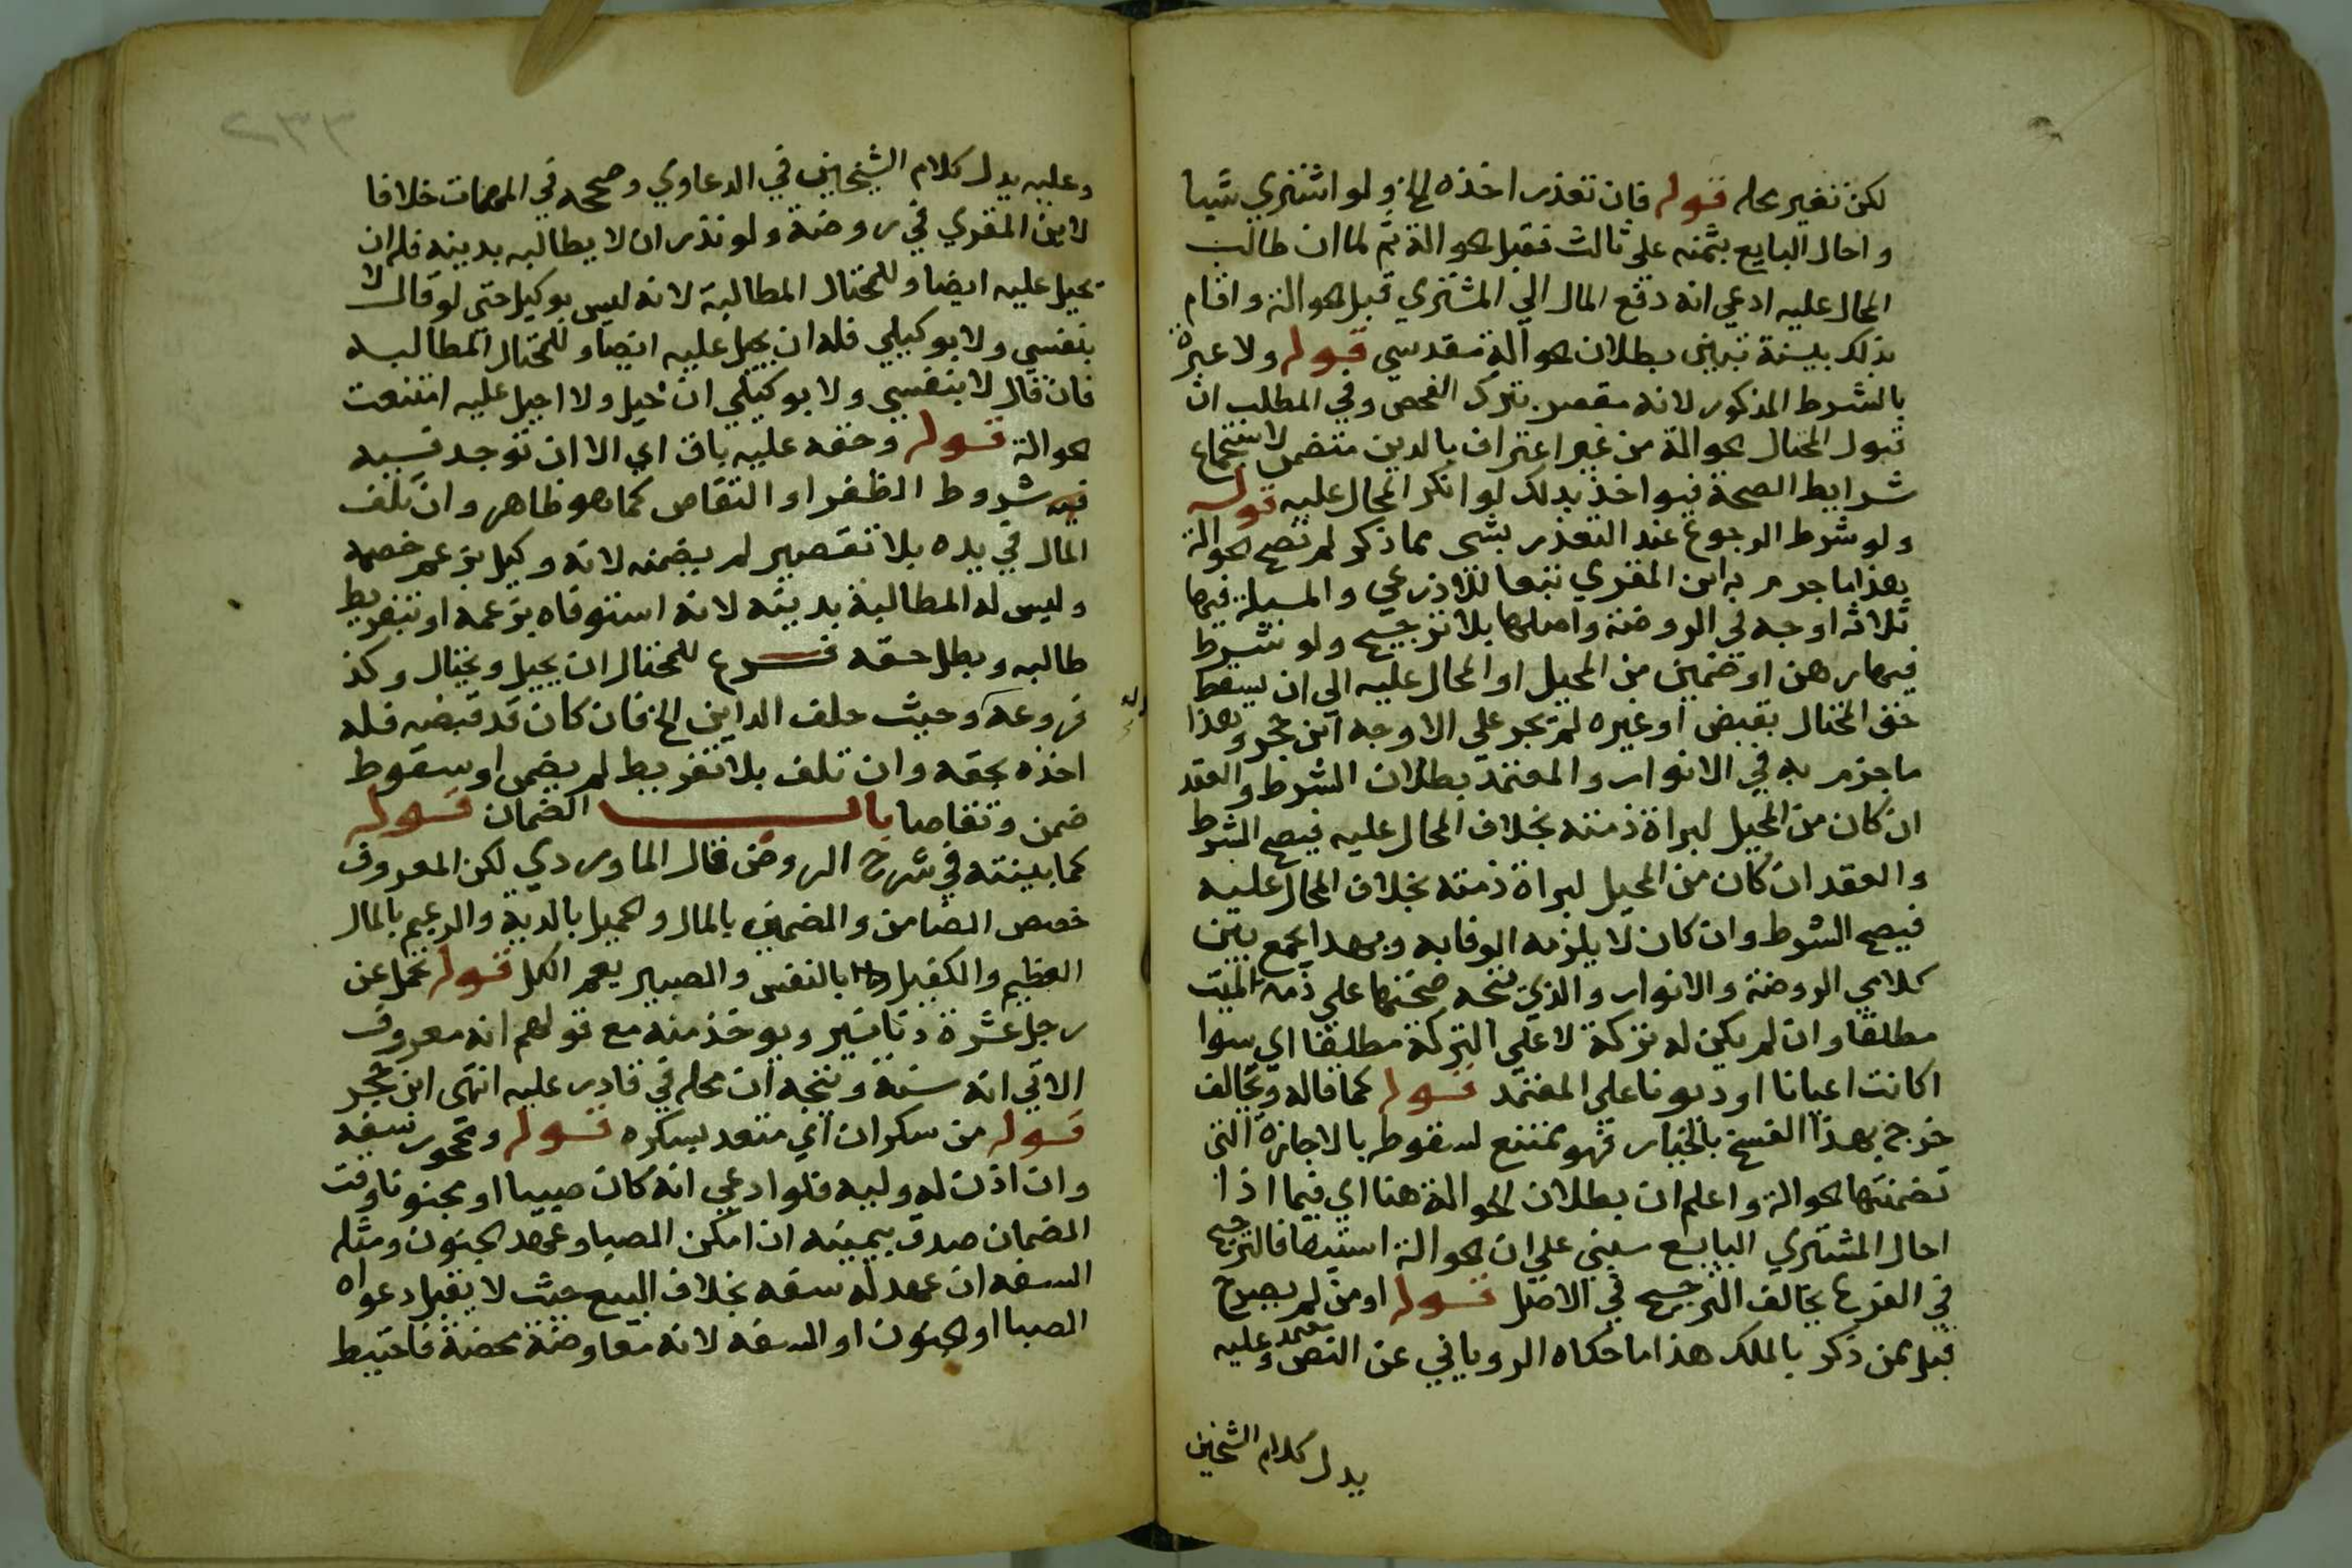 لكن تغير محله قوله فان تعذر اخذه الخ ولو اشتري شيا
و احال البايع بثمنه على ثالث فقبل الحوالة ثم لما ان طالب
المحال عليه ادعي انه دفع المال الي المشتري قبل الحوالة واقام
بذلك بينة تبين بطلان الحوالة مقدسي قوله ولا عبرة
بالشرط المذكور لانه مقصر بترك الفحص وفي المطلب ان
قبول المحتال الحوالة من غير اعتراف بالدين متضمن لاستجماع
شرايط الصحة فيواخذ بذلك لو انكر المحال عليه قوله
ولو شرط الرجوع عند التعذر بشي مما ذكر لم تصح الحوالة
هذا ما جزم به ابن المقري تبعا للاذرعي والمسيلة فيها
ثلاثة اوجه في الروضة واصلها بلا ترجيح ولو شرط
فيها رهن او ضمين من المحيل او المحال عليه الي ان يسقط
حق المحتال بقبض او غيره لم يجز علي الاوجه ابن حجر وهذا
ما جزم به في الانوار والمعتمد بطلان الشرط والعقد
ان كان من المحيل لبراة ذمته بخلاف المحال عليه فيصح الشرط
والعقد ان كان من المحيل لبراة ذمته بخلاف المحال عليه
فيصح الشرط وان كان لا يلزمه الوفا به وبهذا يجمع بين
كلامي الروضة والانوار والذي يتجه صحتها علي ذمة الميت
مطلقا وان لم يكن له تركة لا علي التركة مطلقا اي سوا
اكانت اعيانا او ديونا علي المعتمد قوله كما قاله ويخالف
خرج بهذا الفسخ بالخيار فهو ممتنع لسقوطه بالاجازة التي
تضمنتها الحوالة واعلم ان بطلان الحوالة هنا اي فيما اذا
احال المشتري البايع مبني علي ان الحوالة استيفا فالترجيح
في الفرع يخالف الترجيح في الاصل قوله او من لم يصرح
قبل ممن ذكر بالملك هذا ما حكاه الروياني عن النص معتمد وعليه
يدل كلام الشيخين
٢٣٣
وعليه يدل كلام الشيخين في الدعاوي وصححه في المهمات خلافا
لابن المقري في روضه ولو نذر ان لا يطالبه بدينه فله ان
يحيل عليه ايضا وللمحتال المطالبة لانه ليس بوكيل حتي لو قال لا
بنفسي ولا بوكيلي فله ان يحيل عليه ايضا وللمحتال المطالبة
فان قال لا بنفسي ولا بوكيلي ان احيل ولا احيل عليه امتنعت
الحوالة قوله وحقه عليه باق اي الا ان توجد
فيه شروط الظفر او التقاص كما هو ظاهر وان تلف
المال في يده بلا تقصير لم يضمنه لانه وكيل بزعم خصمه
وليس له المطالبة بدينه لانه استوفاه بزعمه او بتفريط
طالبه وبطل حقه فرع للمحتال ان يحيل ويحتال وكذ
فروعه وحيث حلف الداين الخ فان كان قد قبضه فله
اخذه بحقه وان تلف بلا تفريط لم يضمن او سقوط
ضمن وتقاصا باب الضمان قوله
كما بينته في شرح الروض قال الماوردي لكن المعروف
خصص الضامن والضمين بالمال والحميل بالدية والزعيم بالمال
العظيم والكفيل بالنفس والصبير يعم الكل قوله تحمل عن
رجل عشرة دنانير ويوخذ منه مع قولهم انه معروف
الاتي انه سنة ويتجه ان محله في قادر عليه انتهى ابن حجر
قوله من سكران اي متعد بسكره قوله ومحجور سفه
وان اذن له وليه فلو ادعي انه كان صبيا او مجنونا وقت
الضمان صدق بيمينه ان امكن الصبا وعهد الجنون ومثله
السفه ان عهد له سفه بخلاف البيع حيث لا يقبل دعواه
الصبا او الجنون او السفه لانه معاوضة محضة فاحتيط